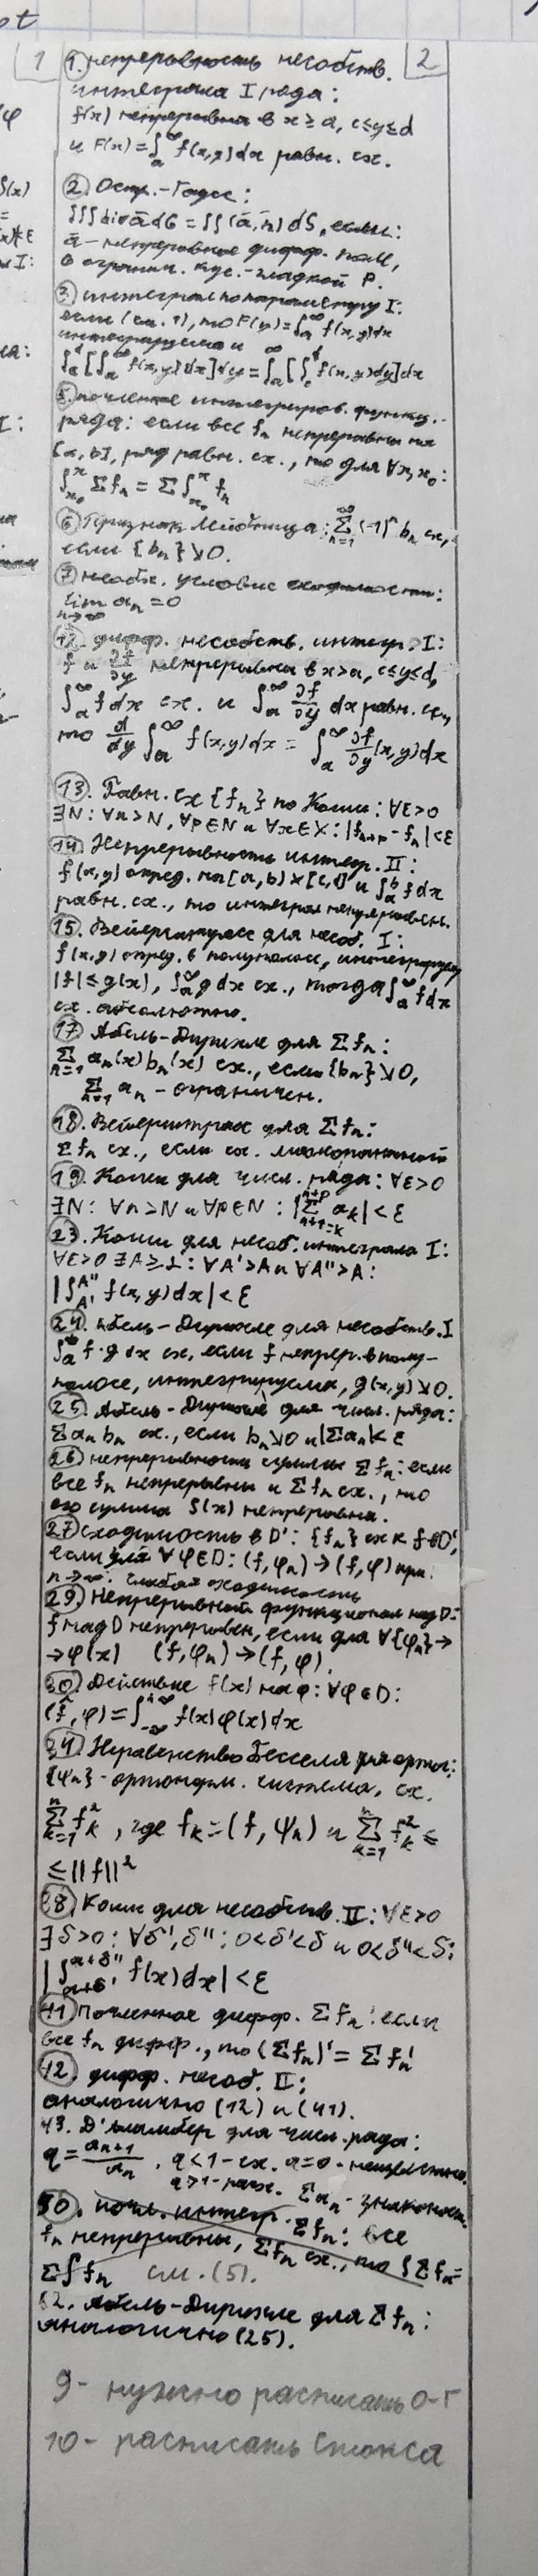 1
2
1. непрерывность несобств.
интеграла I рода:
f(x) непрерывна в x ≥ a, c≤y≤d
и F(x) = ∫ₐ^∞ f(x,y)dx равн. сх.
2. Остр.-Гаусс:
∫∫∫ div ā dG = ∫∫(ā, n̄) dS, если:
ā - непрерывное дифф. поле,
в огранич. кус.-гладкой P.
3. интеграл по параметру I:
если (см. 1), то F(y) = ∫ₐ^∞ f(x,y)dx
интегрируема и
[∫ₐ^∞ f(x,y)dx]dy = ∫ₐ^∞ [∫ f(x,y)dy]dx
5. почленное интегриров. функц.
ряда: если все fₙ непрерывны на
[a, b], ряд равн. сх., то для ∀x,x₀:
∫ₓ₀^x Σfₙ = Σ∫ₓ₀^x fₙ
6. Признак Лейбница: Σₙ₌₁^∞ (-1)ⁿ bₙ сх.,
если {bₙ}↘0.
7. необх. условие сходимости:
lim aₙ = 0
n→∞
12. дифф. несобств. интегр. I:
f и ∂f/∂y непрерывна в x>a, c≤y≤d,
∫ₐ^∞ f dx сх. и ∫ₐ^∞ ∂f/∂y dx равн. сх.,
то d/dy ∫ₐ^∞ f(x,y)dx = ∫ₐ^∞ ∂f/∂y (x,y)dx
13. Равн. сх {fₙ} по Коши: ∀ε>0
∃N: ∀n>N, ∀p∈N и ∀x∈X: |fₙ₊ₚ - fₙ| < ε
14. Непрерывность интегр. II:
f(x,y) опред. на [a,b)×[c,d] и ∫ₐ^b f dx
равн. сх., то интеграл непрерывен.
15. Вейерштрасс для несоб. I:
f(x,y) опред. в полуполосе, интегрируема
|f| ≤ g(x), ∫ₐ^∞ g dx сх., тогда ∫ₐ^∞ f dx
сх. абсолютно.
17. Абель-Дирихле для Σfₙ:
Σₙ₌₁ aₙ(x)bₙ(x) сх., если {bₙ}↘0,
Σₙ₌₁ aₙ - ограничен.
18. Вейерштрасс для Σfₙ:
Σfₙ сх., если сх. мажорантный
19. Коши для числ. ряда: ∀ε>0
∃N: ∀n>N и ∀p∈N: |Σ aₖ| < ε
23. Коши для несоб. интеграла I:
∀ε>0 ∃A≥1: ∀A'>A и ∀A''>A:
|∫_A'^A'' f(x,y)dx| < ε
24. Абель-Дирихле для несобств. I
∫ₐ^∞ f·g dx сх, если f непрер. в полу-
полосе, интегрируема, g(x,y)↘0.
25. Абель-Дирихле для числ. ряда:
Σaₙbₙ сх., если bₙ↘0 и |Σaₙ| < ε
26. непрерывность суммы Σfₙ: если
все fₙ непрерывны и Σfₙ сх., то
его сумма S(x) непрерывна.
27. сходимость в D': {fₙ} сх к f∈D',
если для ∀φ∈D: (f, φₙ)→(f, φ) при
n→∞: слабая сходимость
29. Непрерывный функционал над D:
f над D непрерывен, если для ∀{φₙ}→
→φ(x) (f, φₙ)→(f, φ).
30. Действие f(x) на φ: ∀φ∈D:
(f, φ) = ∫₋∞^+∞ f(x)φ(x)dx
34. Неравенство Бесселя для ортог:
{ψₙ} - ортонорм. система, сх.
Σₖ₌₁ⁿ fₖ², где fₖ = (f, ψₙ) и Σₖ₌₁ⁿ fₖ² ≤
≤ ||f||²
38. Коши для несобств. II: ∀ε>0
∃δ>0: ∀δ',δ'': 0<δ'<δ и 0<δ''<δ:
|∫ₐ₊δ'^a+δ'' f(x)dx| < ε
41. Почленное дифф. Σfₙ: если
все fₙ дифф., то (Σfₙ)' = Σfₙ'
42. дифф. несоб. II:
аналогично (12) и (41).
43. Д'Аламбер для числ. ряда:
q = aₙ₊₁/aₙ, q<1 - сх.
q>1 - расх. Σaₙ -
50. почл. интегр. Σfₙ: все
fₙ непрерывны, Σfₙ сх., то ∫Σfₙ=
Σ∫fₙ см. (5).
52. Абель-Дирихле для Σfₙ:
аналогично (25).
9 - нужно расписать О-Г
10 - расписать Стокса